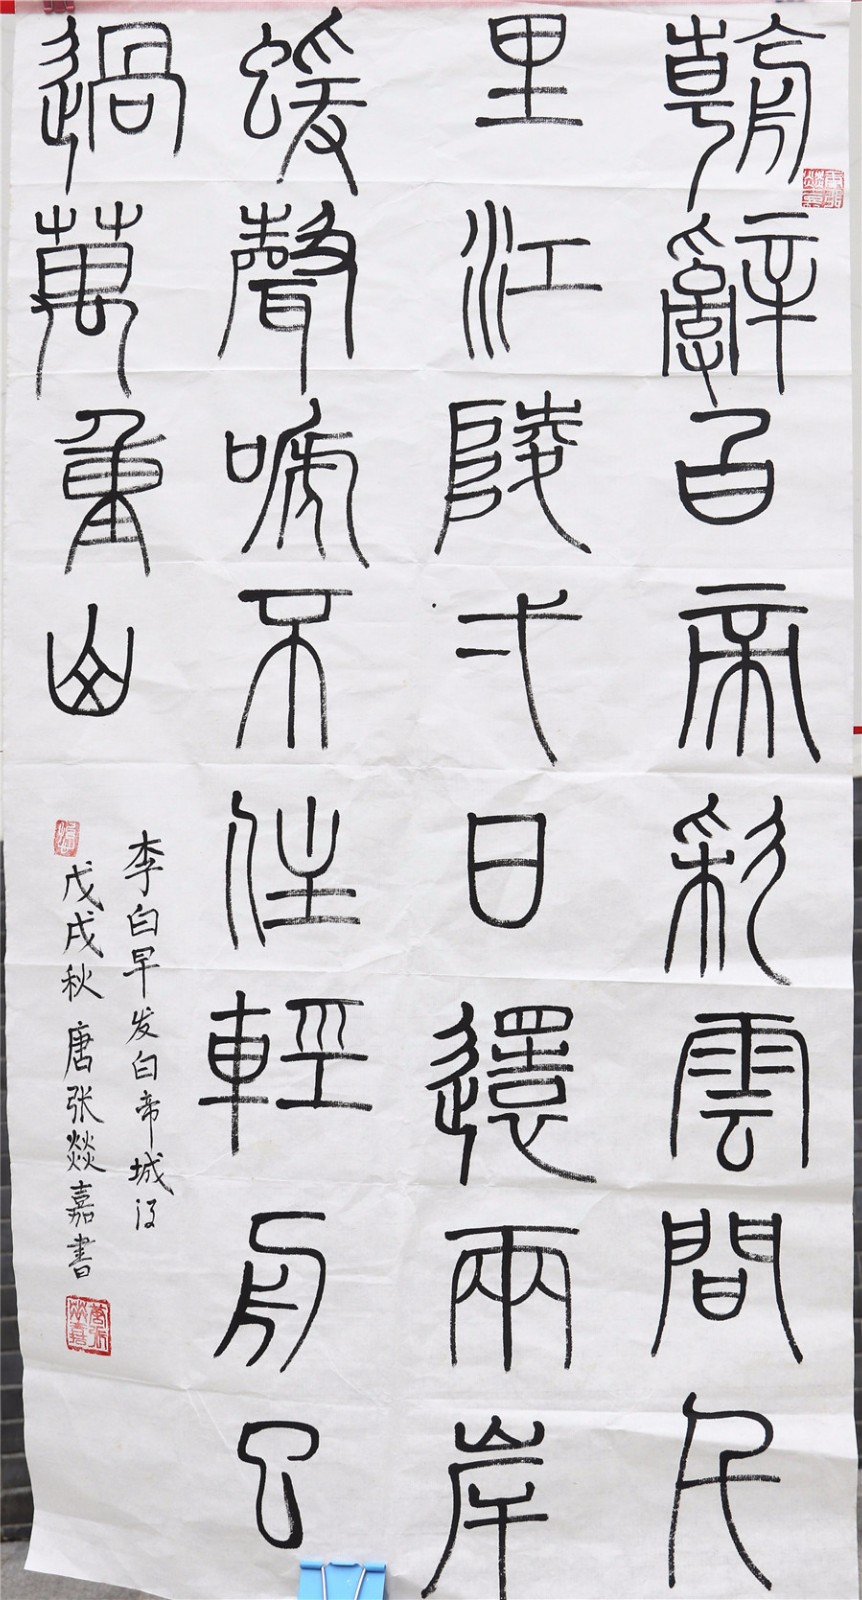 朝辭白帝彩雲間千
里江陵弌日還兩岸
蝯聲嗁不住輕舟已
過萬重山
李白早发白帝城诗
戊戌秋唐张燚嘉書